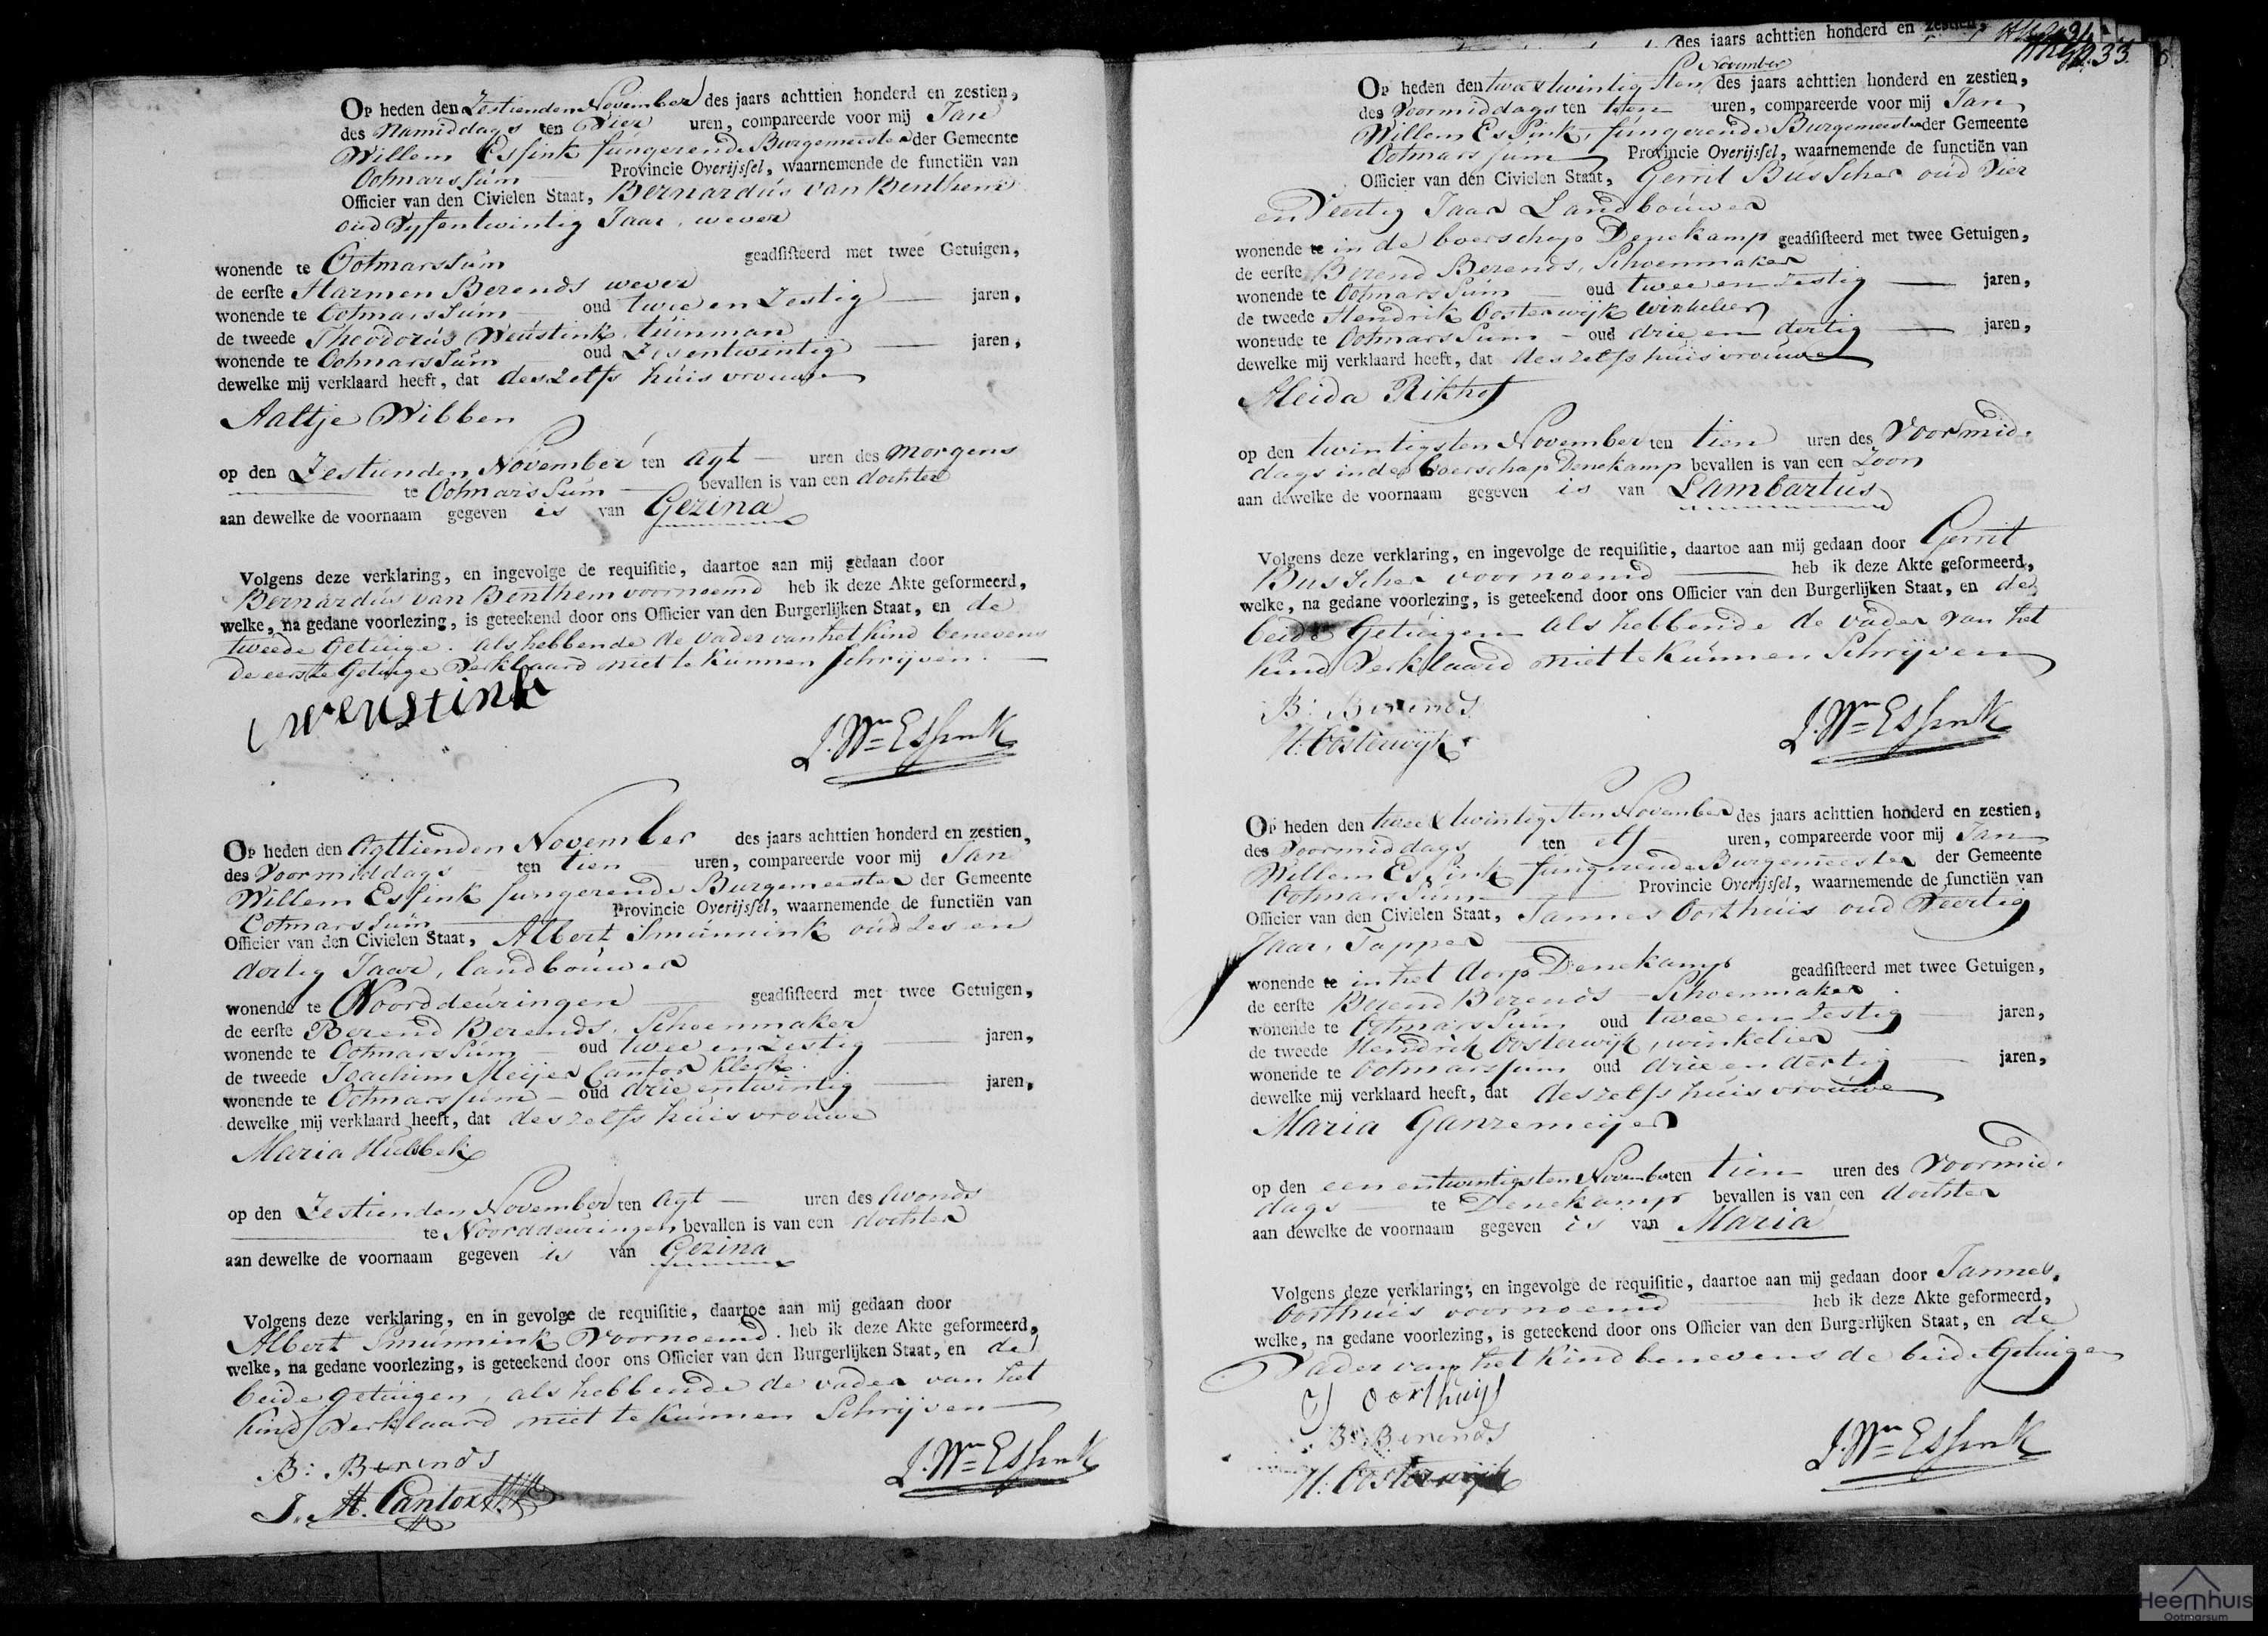 Op heden den Zestienden November des jaars achttien honderd en zestien,
des Namiddags ten Vier uren, compareerde voor mij Jan
Willem Essink fungerende Burgemeester der Gemeente
Ootmarssum Provincie Overijssel, waarnemende de functiën van
Officier van den Civielen Staat, Bernardus van Benthem
oud Vyfentwintig Jaar, wever
wonende te Ootmarssum geadsisteerd met twee Getuigen,
de eerste Harmen Berends wever
wonende te Ootmarssum oud twee en Zestig jaren,
de tweede Theodorus Weustink, tuinman
wonende te Ootmarssum oud Zesentwintig jaren,
dewelke mij verklaard heeft, dat deszelfs huisvrouwe
Aaltje Wibben
op den Zestienden November ten agt uren des Morgens
te Ootmarssum bevallen is van een dochter
aan dewelke de voornaam gegeven is van Gezina
Volgens deze verklaring, en ingevolge de requisitie, daartoe aan mij gedaan door
Bernardus van Benthem voornoemd heb ik deze Akte geformeerd,
welke, na gedane voorlezing, is geteekend door ons Officier van den Burgerlijken Staat, en de
tweede Getuige. als hebbende de vader van het kind benevens
de eerste Getuige Verklaard niet te kunnen Schrijven.
Weustink
J. Wm Essink
Op heden den Agttienden November des jaars achttien honderd en zestien,
des Voormiddags ten tien uren, compareerde voor mij Jan
Willem Essink fungerende Burgemeester der Gemeente
Ootmarssum Provincie Overijssel, waarnemende de functiën van
Officier van den Civielen Staat, Albert Smunnink oud Zes en
dertig Jaar, landbouwer
wonende te Noorddeuringen geadsisteerd met twee Getuigen,
de eerste Berend Berends, Schoenmaker
wonende te Ootmarssum oud twee en Zestig jaren,
de tweede Joachim Meijer Cantor Klerk
wonende te Ootmarssum oud drie entwintig jaren,
dewelke mij verklaard heeft, dat deszelfs huisvrouwe
Maria
op den Zestienden November ten Agt uren des Avonds
te Noorddeuringen bevallen is van een dochter
aan dewelke de voornaam gegeven is van Gezina
Volgens deze verklaring, en in gevolge de requisitie, daartoe aan mij gedaan door
Albert Smunnink Voornoemd. heb ik deze Akte geformeerd,
welke, na gedane voorlezing, is geteekend door ons Officier van den Burgerlijken Staat, en de
beide Getuigen, als hebbende de vader van het
Kind Verklaard niet te Kunnen Schrijven
B: Berends
J. M. Cantor
J. Wm Essink
des jaars achttien honderd en zestien,
33.
November
Op heden den twee & twintigsten des jaars achttien honderd en zestien,
des Voormiddags ten tien uren, compareerde voor mij Jan
Willem Essink, fungerende Burgemeester der Gemeente
Ootmarssum Provincie Overijssel, waarnemende de functiën van
Officier van den Civielen Staat, Gerrit Busscher oud Vier
en Veertig Jaar Landbouwer
wonende te in de boerschap Denekamp geadsisteerd met twee Getuigen,
de eerste Berend Berends, Schoenmaker
wonende te Ootmarssum oud twee en Zestig jaren,
de tweede Hendrik Oosterwijk Winkelier
wonende te Ootmarssum oud drie en dertig jaren,
dewelke mij verklaard heeft, dat deszelfs huisvrouwe
Aleida Rikhof
op den twintigsten November ten tien uren des Voormid-
dags in de boerschap Denekamp bevallen is van een Zoon
aan dewelke de voornaam gegeven is van Lambartus
Volgens deze verklaring, en ingevolge de requisitie, daartoe aan mij gedaan door Gerrit
Busscher voornoemd heb ik deze Akte geformeerd,
welke, na gedane voorlezing, is geteekend door ons Officier van den Burgerlijken Staat, en de
beide Getuigen als hebbende de vader van het
Kind Verklaard niet te Kunnen Schrijven
B: Berends
H: Oosterwijk
J. Wm Essink
Op heden den twee & twintigsten November des jaars achttien honderd en zestien,
des Voormiddags ten elf uren, compareerde voor mij Jan
Willem Essink fungerende Burgemeester der Gemeente
Ootmarssum Provincie Overijssel, waarnemende de functiën van
Officier van den Civielen Staat, Jannes Oorthuis oud Veertig
Jaar, Tapper
wonende te in het dorp Denekamp geadsisteerd met twee Getuigen,
de eerste Berend Berends Schoenmaker
wonende te Ootmarssum oud twee en Zestig jaren,
de tweede Hendrik Oosterwijk, winkelier
wonende te Ootmarssum oud drie en dertig jaren,
dewelke mij verklaard heeft, dat deszelfs huisvrouwe
Maria Ganzemeijer
op den een entwintigsten November ten tien uren des Voormid-
dags te Denekamp bevallen is van een dochter
aan dewelke de voornaam gegeven is van Maria
Volgens deze verklaring, en ingevolge de requisitie, daartoe aan mij gedaan door Jannes
Oorthuis voornoemd heb ik deze Akte geformeerd,
welke, na gedane voorlezing, is geteekend door ons Officier van den Burgerlijken Staat, en de
Vader van het Kind benevens de beide Getuigen
J Oorthuijs
B: Berends
H: Oosterwijk
J. Wm Essink
Heemhuis
Ootmarsum